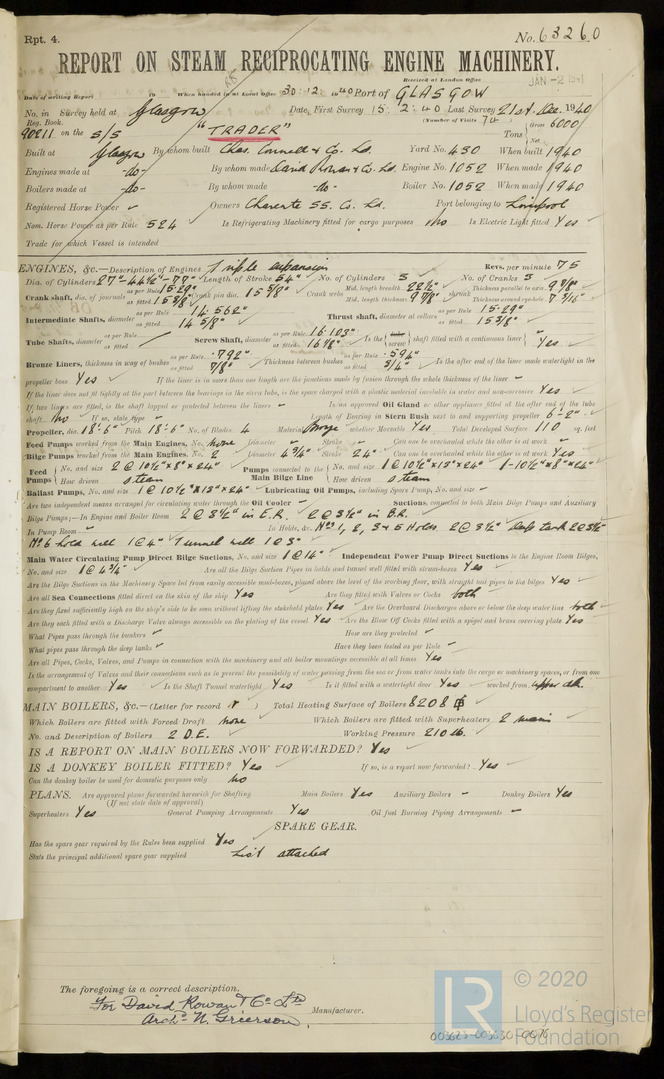 Rpt. 4.
No. 63260
REPORT ON STEAM RECIPROCATING ENGINE MACHINERY.
Received at London Office
JAN -2 1941
Date of writing Report 19 When handed in at Local Office 30·12· 1940 Port of GLASGOW
No. in Survey held at Glasgow Date, First Survey 15·2·40 Last Survey 21st Dec. 1940
Reg. Book. (Number of Visits 74
90211 on the S/S "TRADER" Tons Gross 6000 Net
Built at Glasgow By whom built Chas. Connell & Co. Ld. Yard No. 430 When built 1940
Engines made at -do- By whom made David Rowan & Co. Ld. Engine No. 1052 When made 1940
Boilers made at -do- By whom made -do- Boiler No. 1052 When made 1940
Registered Horse Power Owners Charente SS. Co. Ld. Port belonging to Liverpool
Nom. Horse Power as per Rule 524 Is Refrigerating Machinery fitted for cargo purposes No Is Electric Light fitted Yes
Trade for which Vessel is intended
ENGINES, &c.—Description of Engines Triple expansion Revs. per minute 75
Dia. of Cylinders 27"-44½"-77" Length of Stroke 54" No. of Cylinders 3 No. of Cranks 3
Crank shaft, dia. of journals as per Rule 15·29" as fitted 15 3/8" Crank pin dia. 15 5/8" Crank webs Mid. length breadth 22½" Mid. length thickness 9 7/8" shrunk Thickness parallel to axis 9 7/8" Thickness around eyehole 7 3/16"
Intermediate Shafts, diameter as per Rule 14·562" as fitted 14 5/8" Thrust shaft, diameter at collars as per Rule 15·29" as fitted 15 3/8"
Tube Shafts, diameter as per Rule as fitted Screw Shaft, diameter as per Rule 16·103" as fitted 16 1/8" Is the screw shaft fitted with a continuous liner Yes
Bronze Liners, thickness in way of bushes as per Rule ·792" as fitted 7/8" Thickness between bushes as per Rule ·594" as fitted 3/4" Is the after end of the liner made watertight in the
propeller boss Yes If the liner is in more than one length are the junctions made by fusion through the whole thickness of the liner –
If the liner does not fit tightly at the part between the bearings in the stern tube, is the space charged with a plastic material insoluble in water and non-corrosive Yes
If two liners are fitted, is the shaft lapped or protected between the liners – Is an approved Oil Gland or other appliance fitted at the after end of the tube
shaft No If so, state type – Length of Bearing in Stern Bush next to and supporting propeller 6'-2"
Propeller, dia. 18'-6" Pitch 18'-6" No. of Blades 4 Material Bronze whether Moveable Yes Total Developed Surface 110 sq. feet
Feed Pumps worked from the Main Engines, No. None Diameter – Stroke – Can one be overhauled while the other is at work –
Bilge Pumps worked from the Main Engines, No. 2 Diameter 4¾" Stroke 24" Can one be overhauled while the other is at work Yes
Feed Pumps No. and size 2 @ 10½" x 8" x 24" Pumps connected to the Main Bilge Line No. and size 1 @ 10½" x 13" x 24" 1-10½" x 8" x 24"
How driven steam How driven steam
Ballast Pumps, No. and size 1 @ 10½" x 13" x 24" Lubricating Oil Pumps, including Spare Pump, No. and size –
Are two independent means arranged for circulating water through the Oil Cooler – Suctions, connected to both Main Bilge Pumps and Auxiliary
Bilge Pumps;—In Engine and Boiler Room 2 @ 3½" in E.R. 2 @ 3½" in B.R.
In Pump Room – In Holds, &c. Nos 1, 2, 3 & 5 Holds 2 @ 3½" Deep tank 2 @ 3½"
No 6 hold well 1 @ 4" Tunnel well 1 @ 3"
Main Water Circulating Pump Direct Bilge Suctions, No. and size 1 @ 14" Independent Power Pump Direct Suctions to the Engine Room Bilges,
No. and size 1 @ 4¾" Are all the Bilge Suction Pipes in holds and tunnel well fitted with strum-boxes Yes
Are the Bilge Suctions in the Machinery Space led from easily accessible mud-boxes, placed above the level of the working floor, with straight tail pipes to the bilges Yes
Are all Sea Connections fitted direct on the skin of the ship Yes Are they fitted with Valves or Cocks both
Are they fixed sufficiently high on the ship's side to be seen without lifting the stokehold plates Yes Are the Overboard Discharges above or below the deep water line both
Are they each fitted with a Discharge Valve always accessible on the plating of the vessel Yes Are the Blow Off Cocks fitted with a spigot and brass covering plate Yes
What Pipes pass through the bunkers – How are they protected –
What pipes pass through the deep tanks – Have they been tested as per Rule –
Are all Pipes, Cocks, Valves, and Pumps in connection with the machinery and all boiler mountings accessible at all times Yes
Is the arrangement of Valves and their connections such as to prevent the possibility of water passing from the sea or from water tanks into the cargo or machinery spaces, or from one
compartment to another Yes Is the Shaft Tunnel watertight Yes Is it fitted with a watertight door Yes worked from upper dk.
MAIN BOILERS, &c.—(Letter for record r ) Total Heating Surface of Boilers 8208
Which Boilers are fitted with Forced Draft none Which Boilers are fitted with Superheaters 2 main
No. and Description of Boilers 2 D.E. Working Pressure 210 lb.
IS A REPORT ON MAIN BOILERS NOW FORWARDED? Yes
IS A DONKEY BOILER FITTED? Yes If so, is a report now forwarded? Yes
Can the donkey boiler be used for domestic purposes only No
PLANS. Are approved plans forwarded herewith for Shafting Main Boilers Yes Auxiliary Boilers – Donkey Boilers Yes
(If not state date of approval)
Superheaters Yes General Pumping Arrangements Yes Oil fuel Burning Piping Arrangements –
SPARE GEAR.
Has the spare gear required by the Rules been supplied Yes
State the principal additional spare gear supplied List attached
The foregoing is a correct description.
For David Rowan & Co Ltd
Archd N. Grierson, Manufacturer.
LR
© 2020
Lloyd's Register
Foundation
003623-003630-0076